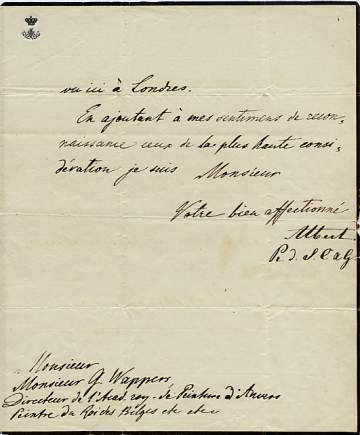 vu ici à Londres.
En ajoutant à mes sentimens de recon-
naissance ceux de la plus haute consi-
dération je suis Monsieur
Votre bien affectionné
Albert
Monsieur
Monsieur G. Wappers
Directeur de l'Acad. roy. de Peinture d'Anvers
Peintre du Roi des Belges etc etc